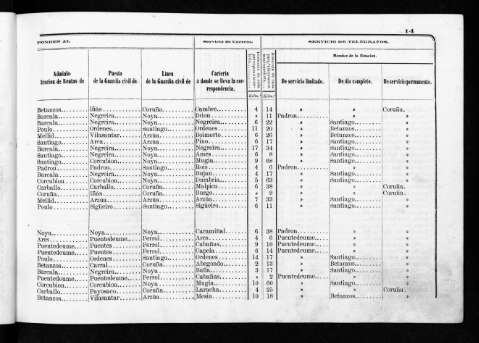 14
PONDEN AL
Servicio de Correos.
SERVICIO DE TELEGRAFOS.
Nombre de la Estacion.
Adminis- Puesto Línea Cartería
tracion de Rentas de de la Guardia civil de de la Guardia civil de á donde se lleva la cor-
respondencia.
De servicio limitado. De dia completo. De servicio permanente.
Betanzos Coruña Cambre 4 14 » » Coruña
Barcala Negreira Noya » 11 Padron » »
Barcala Negreira Noya Negreira 6 22 » Santiago »
Poulo Ordenes Santiago Ordenes 11 20 » Betanzos »
Mellid Villasantar Arzúa Boimorto 6 26 » Betanzos »
Santiago Arca Arzúa Pino 6 17 » Santiago »
Barcala Negreira Noya Negreira 17 34 » Santiago »
Barcala Negreira Noya Ames 6 » Santiago »
Santiago Corcubion Noya Mugía 9 68 » Santiago »
Padron Padron Santiago Rois 4 6 Padron » »
Barcala Negreira Noya 4 17 » Santiago »
Corcubion Corcubion Noya 5 63 » Santiago »
Carballo Carballo Coruña Malpica 6 38 » » Coruña
Coruña Coruña Burgo » 2 » » Coruña
Mellid Arzúa Arzúa Arzúa 7 33 » Santiago »
Poulo Sigüeiro Santiago Sigüeiro 6 11 » Santiago »
Noya Noya Noya Caramiñal 6 38 Padron » »
Ares Puentedeume Ferrol Ares 4 6 Puentedeume » »
Puentedeume Puentes Ferrol Cabañas 9 10 Puentedeume » »
Puentedeume Puentes Ferrol Capela 6 14 Puentedeume » »
Poulo Ordenes Santiago Ordenes 14 17 » Santiago »
Betanzos Carral Coruña Abegondo 2 13 » Betanzos »
Barcala Negreira Noya Baña 3 77 » Santiago »
Puentedeume Puentedeume Ferrol Cabañas » 2 Puentedeume » »
Corcubion Corcubion Noya Mugía 10 66 » Santiago »
Carballo Payosaco Coruña Laracha 4 25 » » Coruña
Betanzos Villasantar Arzúa Mesía 10 18 » Betanzos »